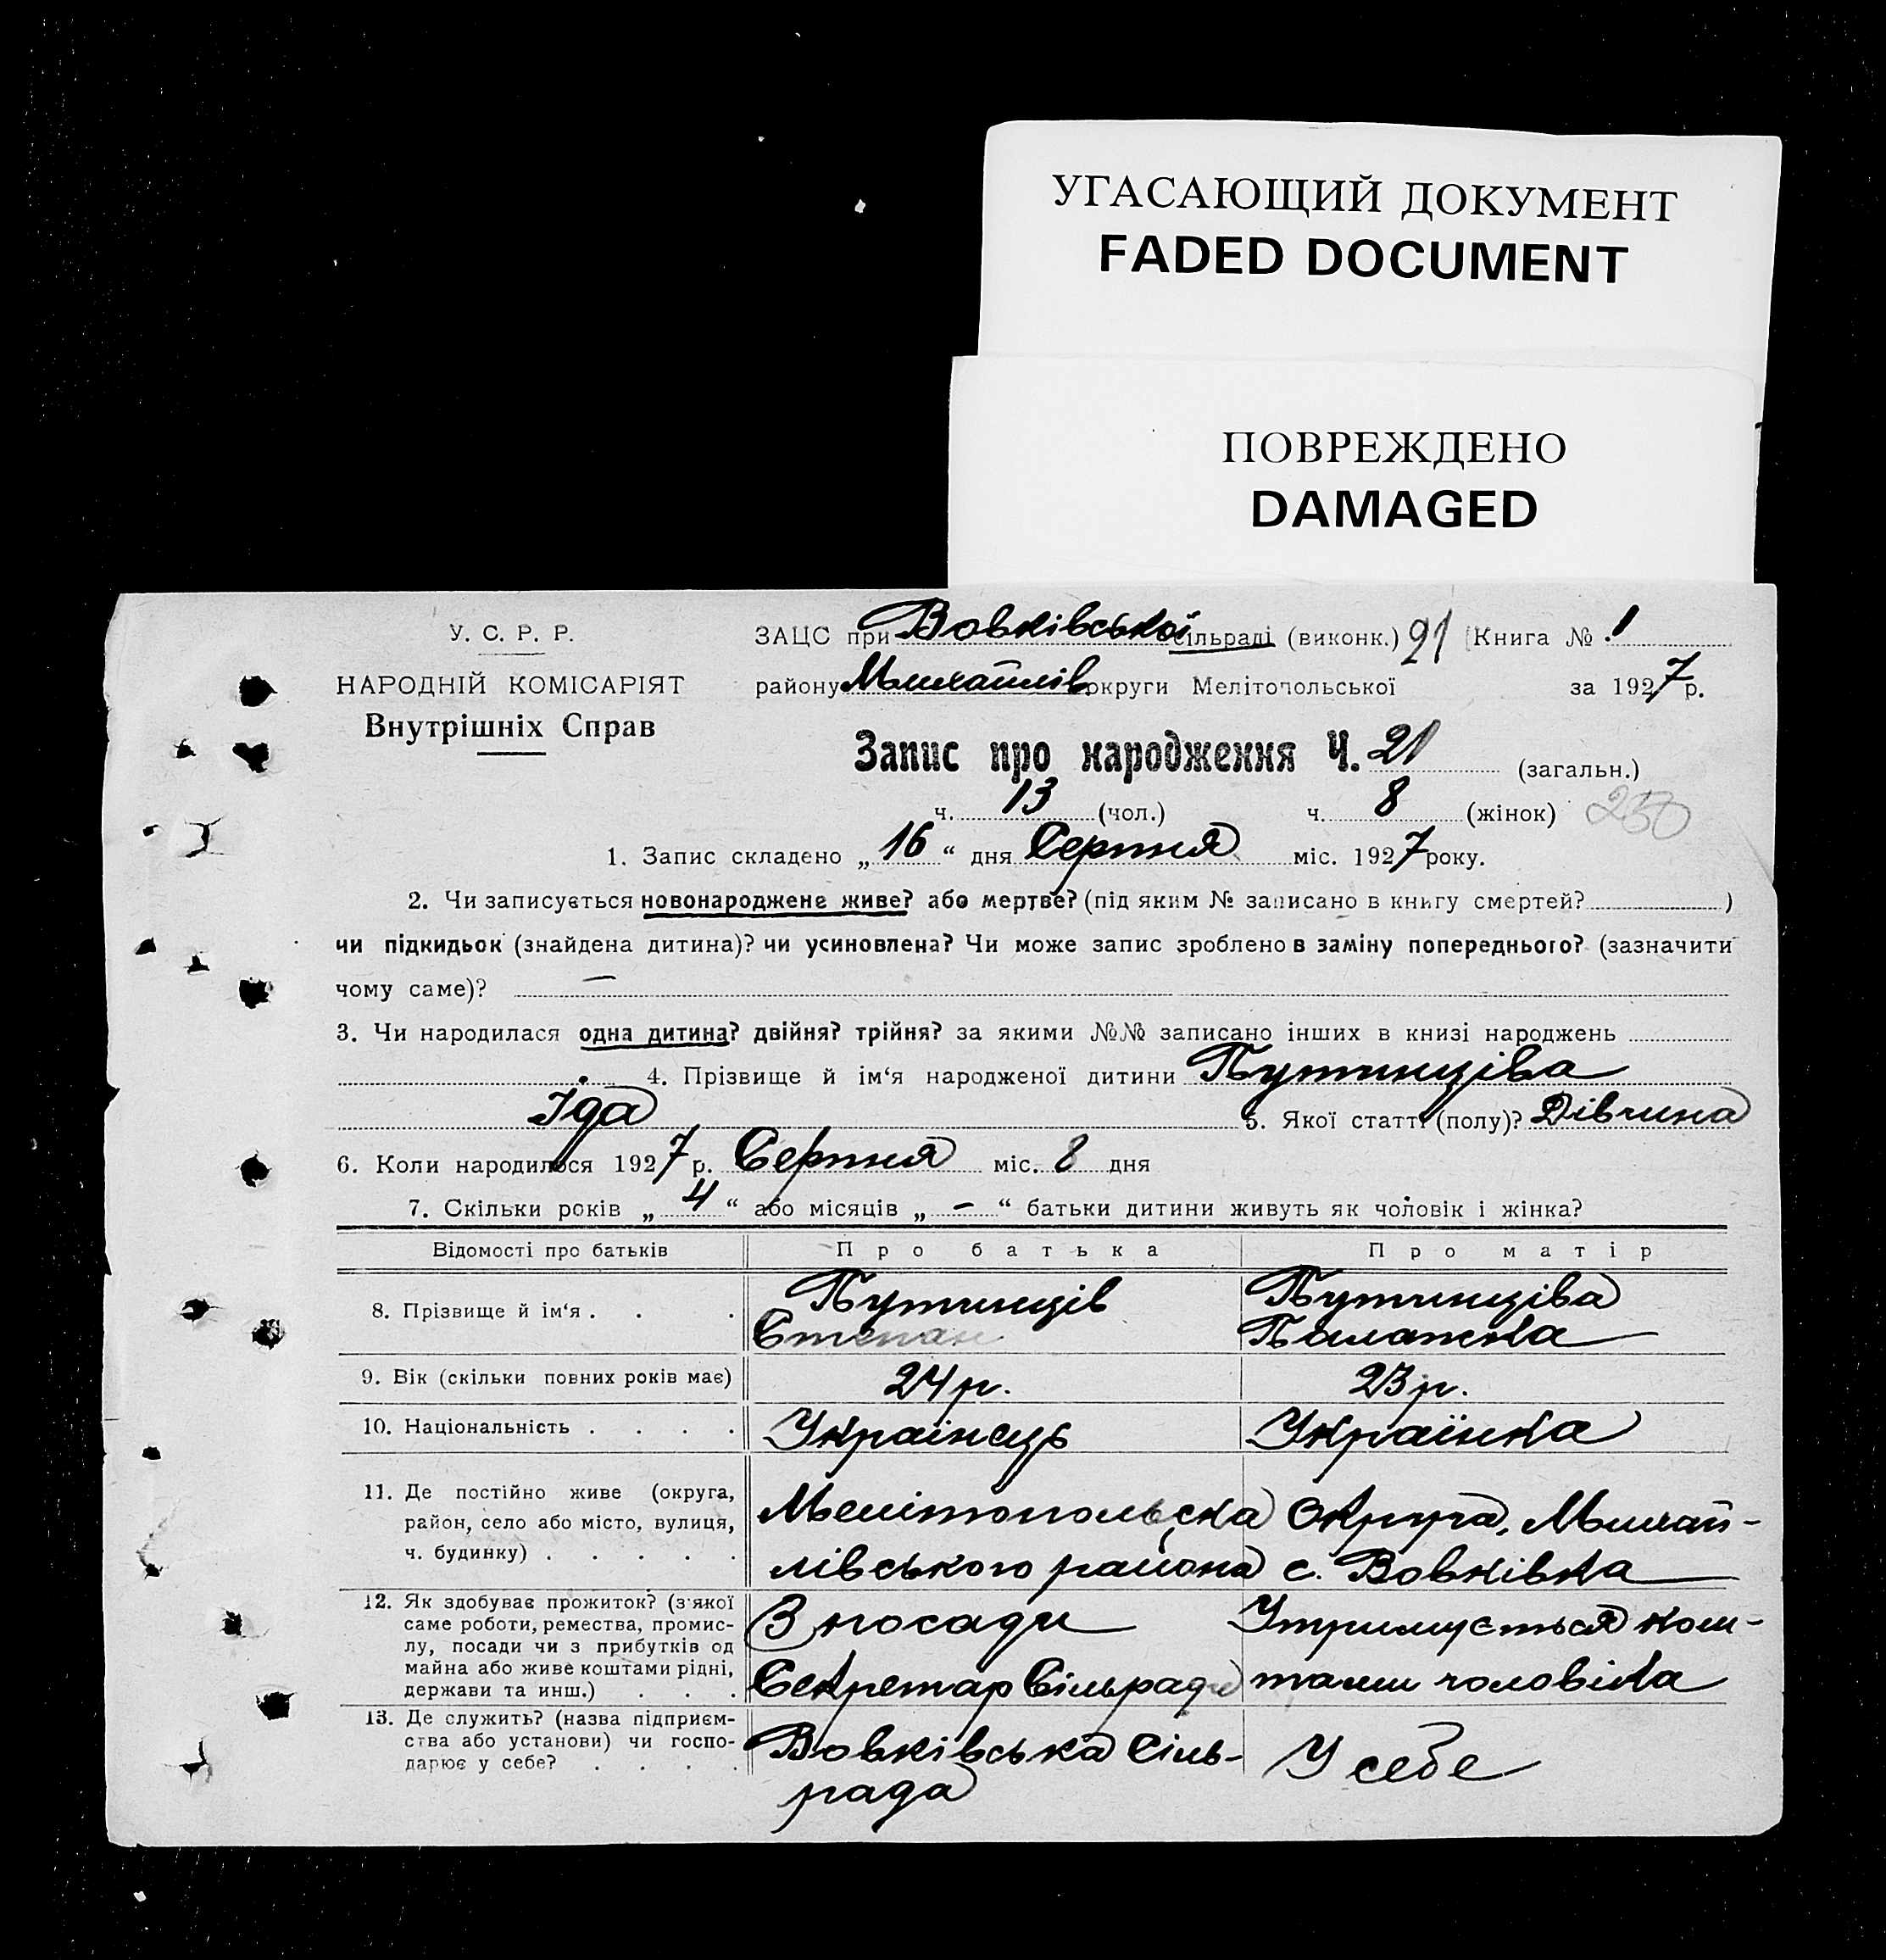 УГАСАЮЩИЙ ДОКУМЕНТ
FADED DOCUMENT
ПОВРЕЖДЕНО
DAMAGED
У. С. Р. Р.
НАРОДНІЙ КОМІСАРІЯТ
Внутрішніх Справ
ЗАЦС при Вовківської сільраді (виконк.) 21 (Книга № 1
району Михайлів округи Мелітопольської за 1927 р.
Запис про народження Ч. 21 (загальн.)
ч. 13 (чол.) ч. 8 (жінок) 250
1. Запис складено „ 16 “ дня Серпня міс. 1927 року.
2. Чи записується новонароджене живе? або мертве? (під яким № записано в книгу смертей? )
чи підкидьок (знайдена дитина)? чи усиновлена? Чи може запис зроблено в заміну попереднього? (зазначити
чому саме)? —
3. Чи народилася одна дитина? двійня? трійня? за якими №№ записано інших в книзі народжень
4. Прізвище й ім‘я народженої дитини Путинціва
Іда 5. Якої статті (полу)? Дівчина
6. Коли народилося 1927 р. Серпня міс. 8 дня
7. Скільки років „ 4 “ або місяців „ - “ батьки дитини живуть як чоловік і жінка?
Відомості про батьків Про батька Про матір
8. Прізвище й ім‘я . . . Путинців Путинціва
Степан Палажка
9. Вік (скільки повних років має) 24 р. 23 р.
10. Національність . . . . Українець Українка
11. Де постійно живе (округа,
район, село або місто, вулиця,
ч. будинку) . . . . .
Мелітопольська Округа, Михай-
лівського района с. Вовківка
12. Як здобуває прожиток? (з'якої
саме роботи, ремества, промис-
лу, посади чи з прибутків од
майна або живе коштами рідні,
держави та инш.) . . .
З посади
Секретар Сільради
Утримується кош-
тами чоловіка
13. Де служить? (назва підприєм-
ства або установи) чи госпо-
дарює у себе? . . . .
Вовківська Сіль-
рада
У себе